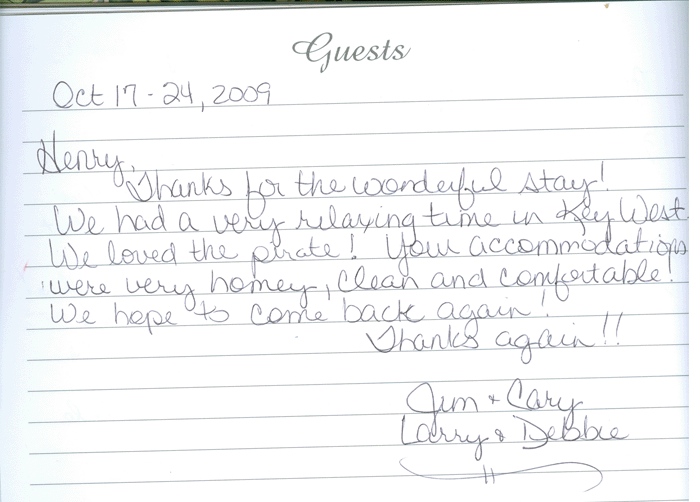 Guests
Oct 17-24, 2009
Henry,
Thanks for the wonderful stay!
We had a very relaxing time in Key West.
We loved the pirate! Your accommodations
were very homey, clean and comfortable!
We hope to come back again!
Thanks again!!
Jim + Cary
Larry & Debbie